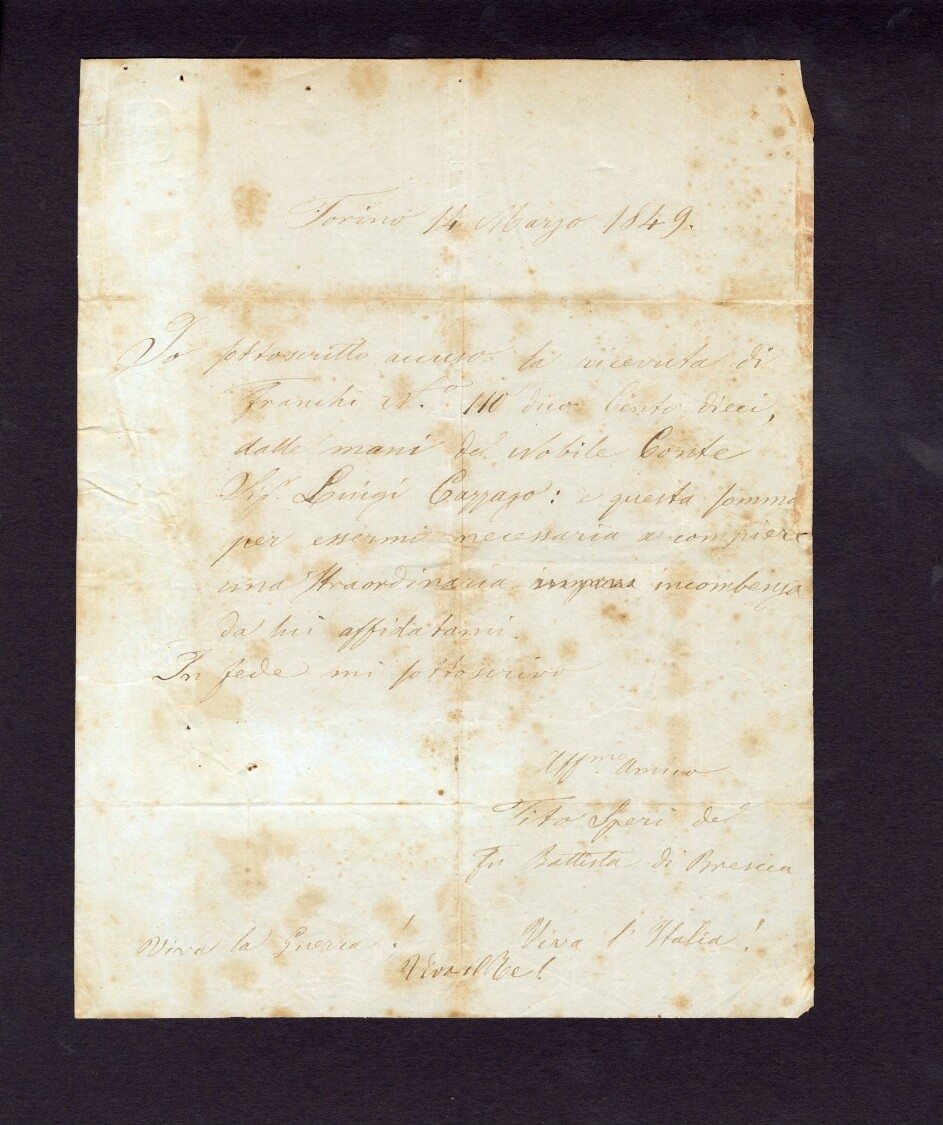 Torino 14 Marzo 1849.
Io sottoscritto accuso la ricevuta di
Franchi N.o 110 dico Cento dieci,
dalle mani del Nobile Conte
Sig.r Luigi Cazzago: e questa somma
per essermi necessaria a compiere
una straordinaria incombenza
da lui affidatami.
In fede mi sottoscrivo
Aff.mo Amico
Tito Speri del
Fu Battista di Brescia
Viva la Guerra! Viva l'Italia!
Viva il Re!